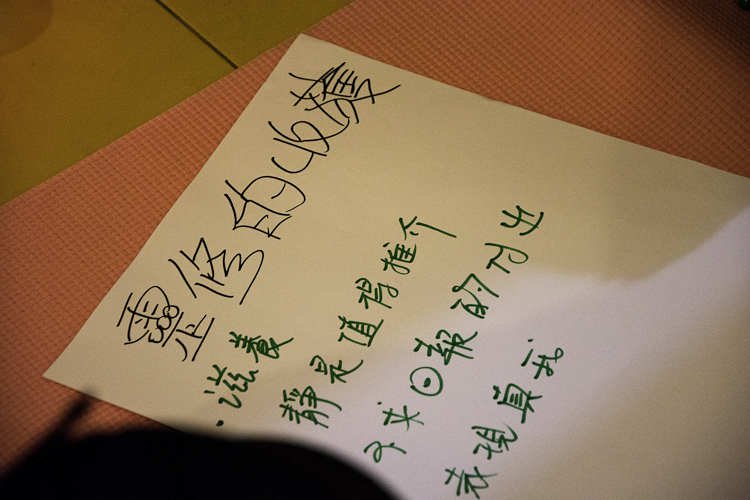 靈修的收穫
·滋養
靜是值得推介
不求回報的付出
表現真我